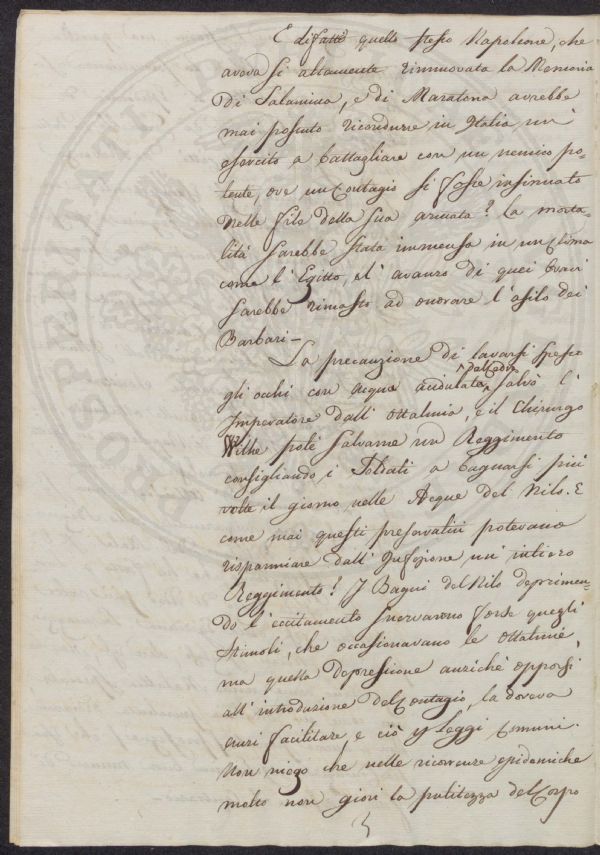 E difatti quello stesso Napoleone, che
aveva sì altamente rinnuovata la Memoria
di Salamina, e di Maratona avrebbe
mai possuto ricondurre in Italia un'
esercito a battagliare con un nemico po=
tente, ove un Contagio si fosse insinuato
nelle file della sua armata? La morta=
lità sarebbe stata immensa in un clima
come l'Egitto, e l'avanzo di quei bravi
sarebbe rimasto ad onorare l'asilo dei
Barbari —
La precauzione di lavarsi spesso
gli occhi con acqua acidulata salvò l'
Imperatore dall'ottalmia, e il Chirurgo
potè salvarne un Reggimento
consigliando i Soldati a bagnarsi più
volte il giorno nelle Acque del Nilo. E
come mai questi preservativi potevano
risparmiare dall'Infezione un'intiero
Reggimento? I Bagni del Nilo deprimen=
do l'eccitamento snervarono forse quegli
stimoli, che occasionavano le ottalmie,
ma quella depressione anzichè opporsi
all'introduzione del Contagio, la doveva
anzi facilitare, e ciò p Leggi comuni.
Non niego che nelle ricorrenze epidemiche
molto non giovi la pulitezza del Corpo